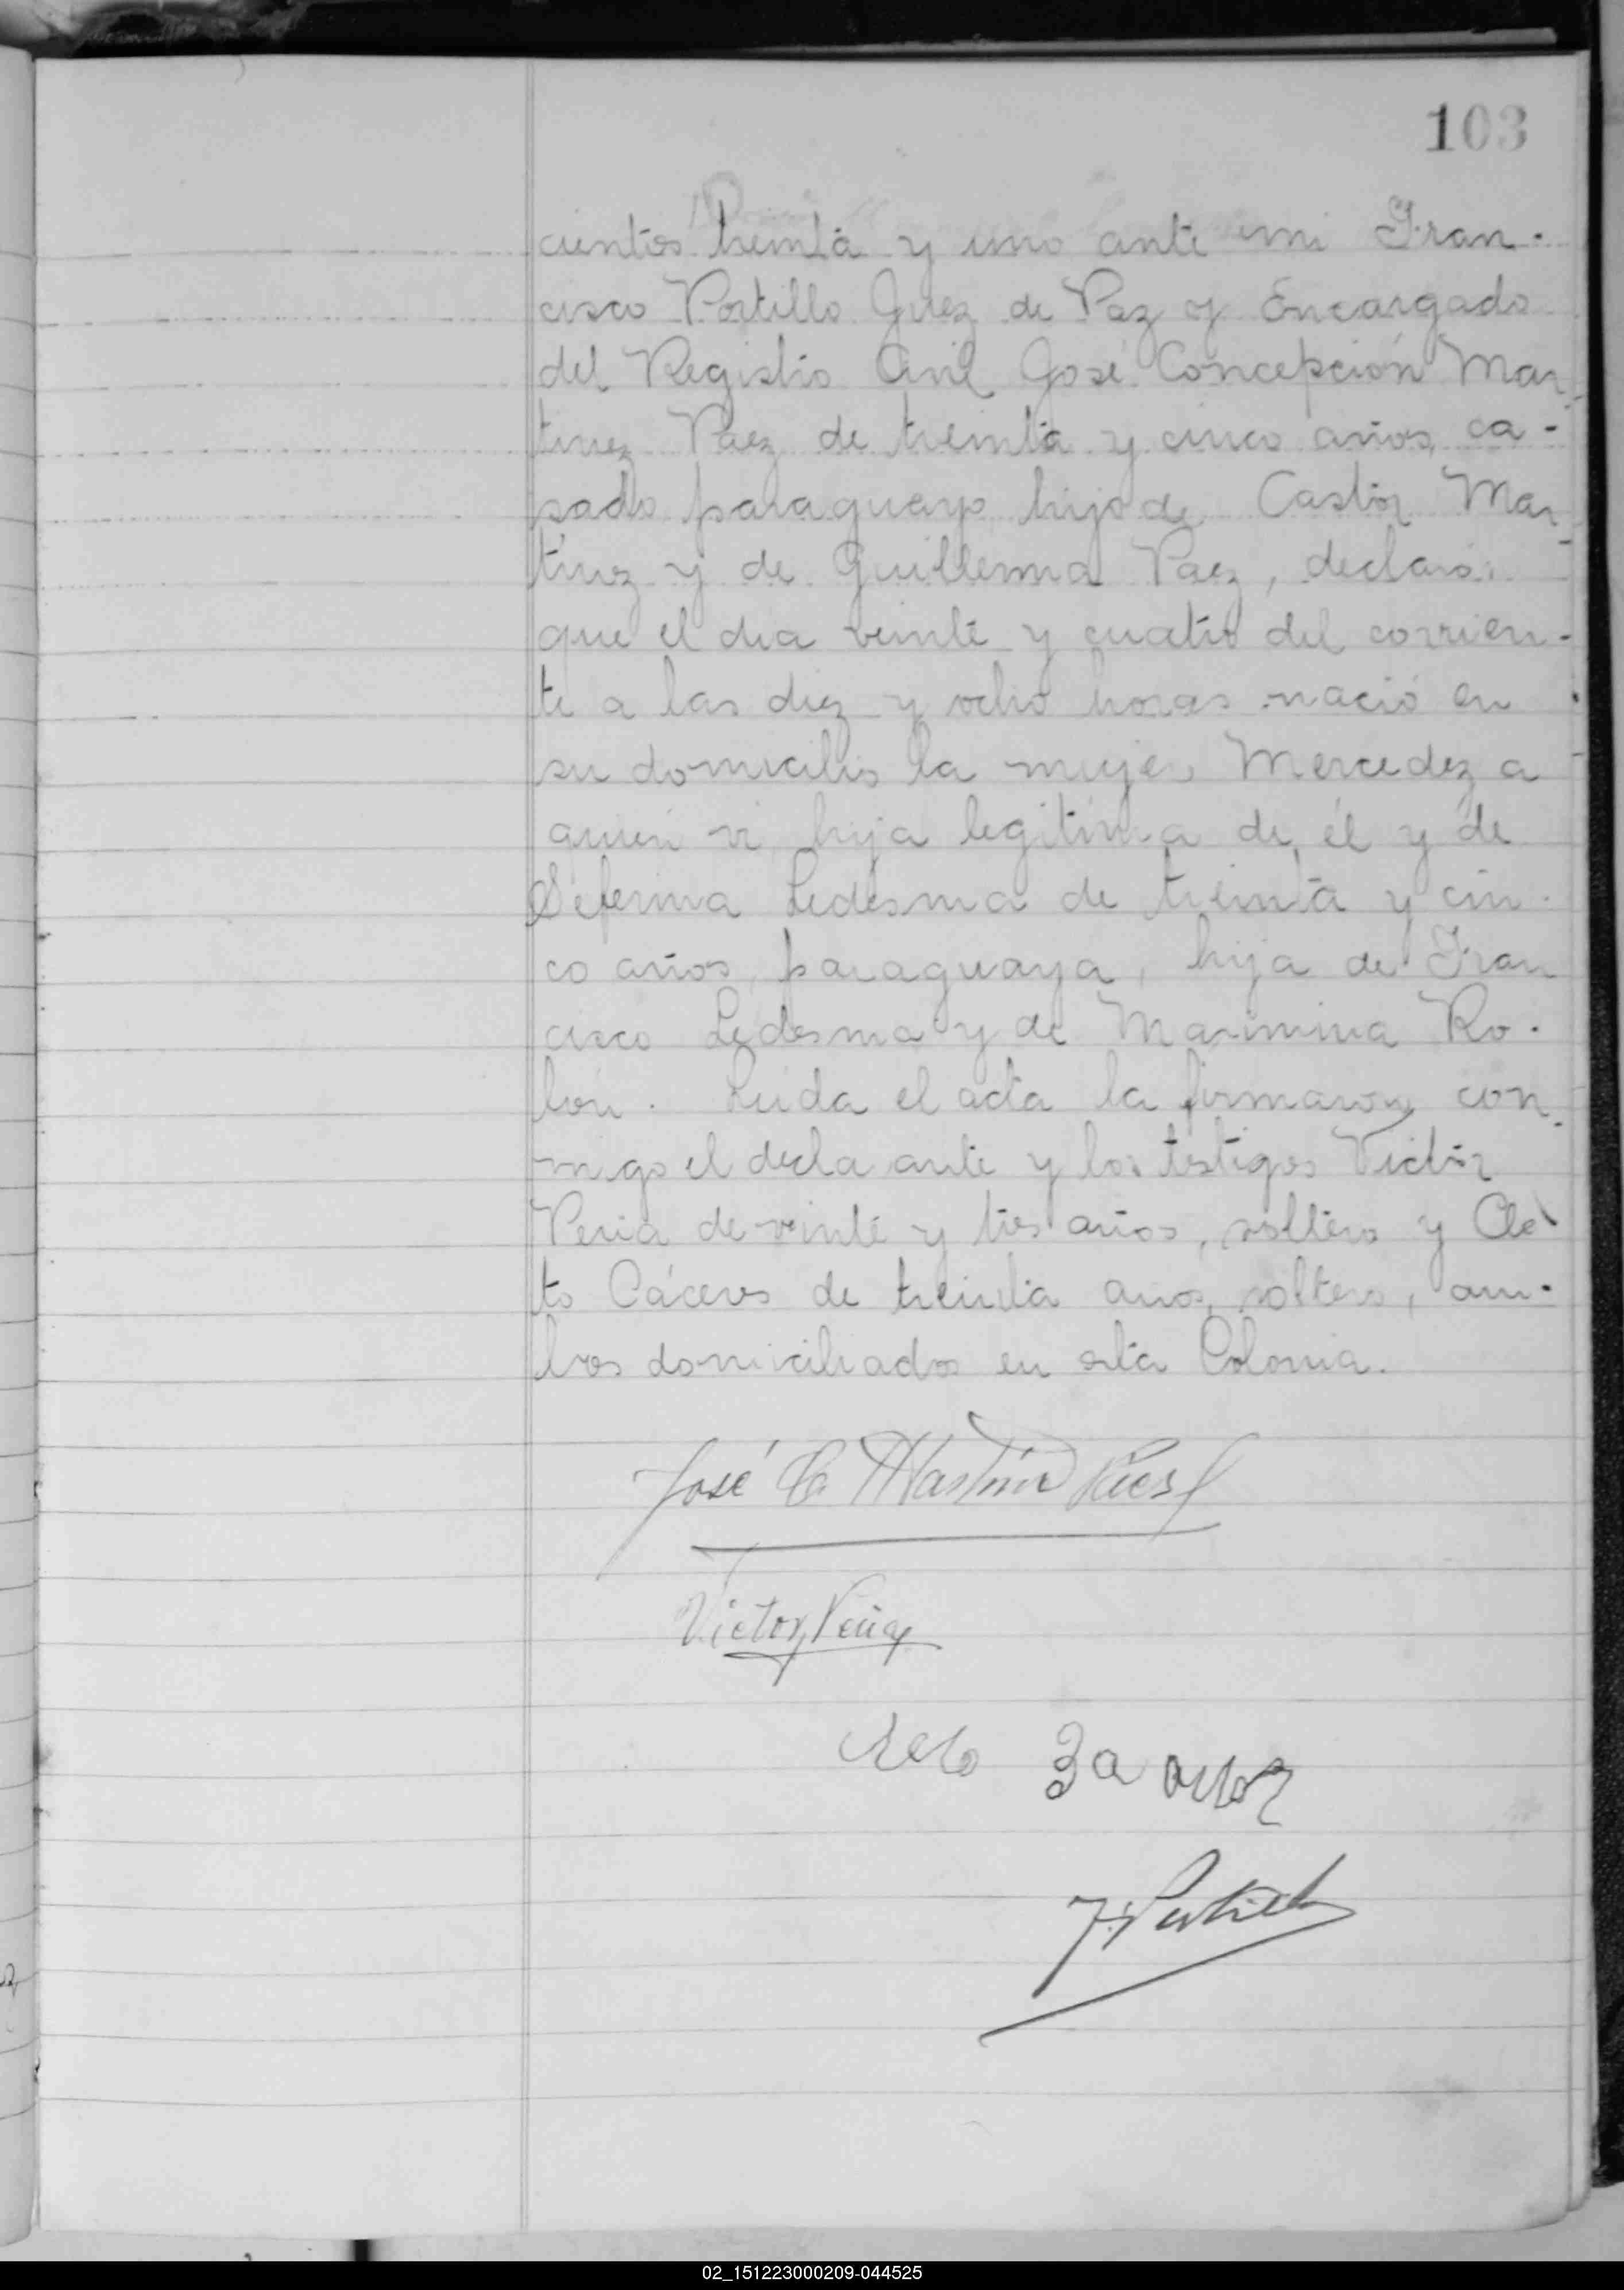 103
cientos treinta y uno ante mi Fran-
cisco Portillo Juez de Paz y Encargado
del Registro Civil José Concepción Mar-
tinez Paez de treinta y cinco años, ca-
sado paraguayo hijo de Castor Mar-
tinez y de Guillerma Paez, declaró:
que el dia veinte y cuatro del corrien-
te a las diez y ocho horas nació en
su domicilio la mujer Mercedez a
quien vi hija legitima de él y de
Seferina Ledesma de treinta y cin-
co años, paraguaya, hija de Fran
cisco Ledesma y de Ro-
lon. Leida el acta la firmaron con-
migo el declarante y los testigos Victor
Peña de veinte y tres años, soltero y Cle-
to Cáceres de treinta años, soltero, am-
bos domiciliados en esta Colonia.
José C. Martinez Páez
Victor Peña
F. Portillo
02_151223000209-044525